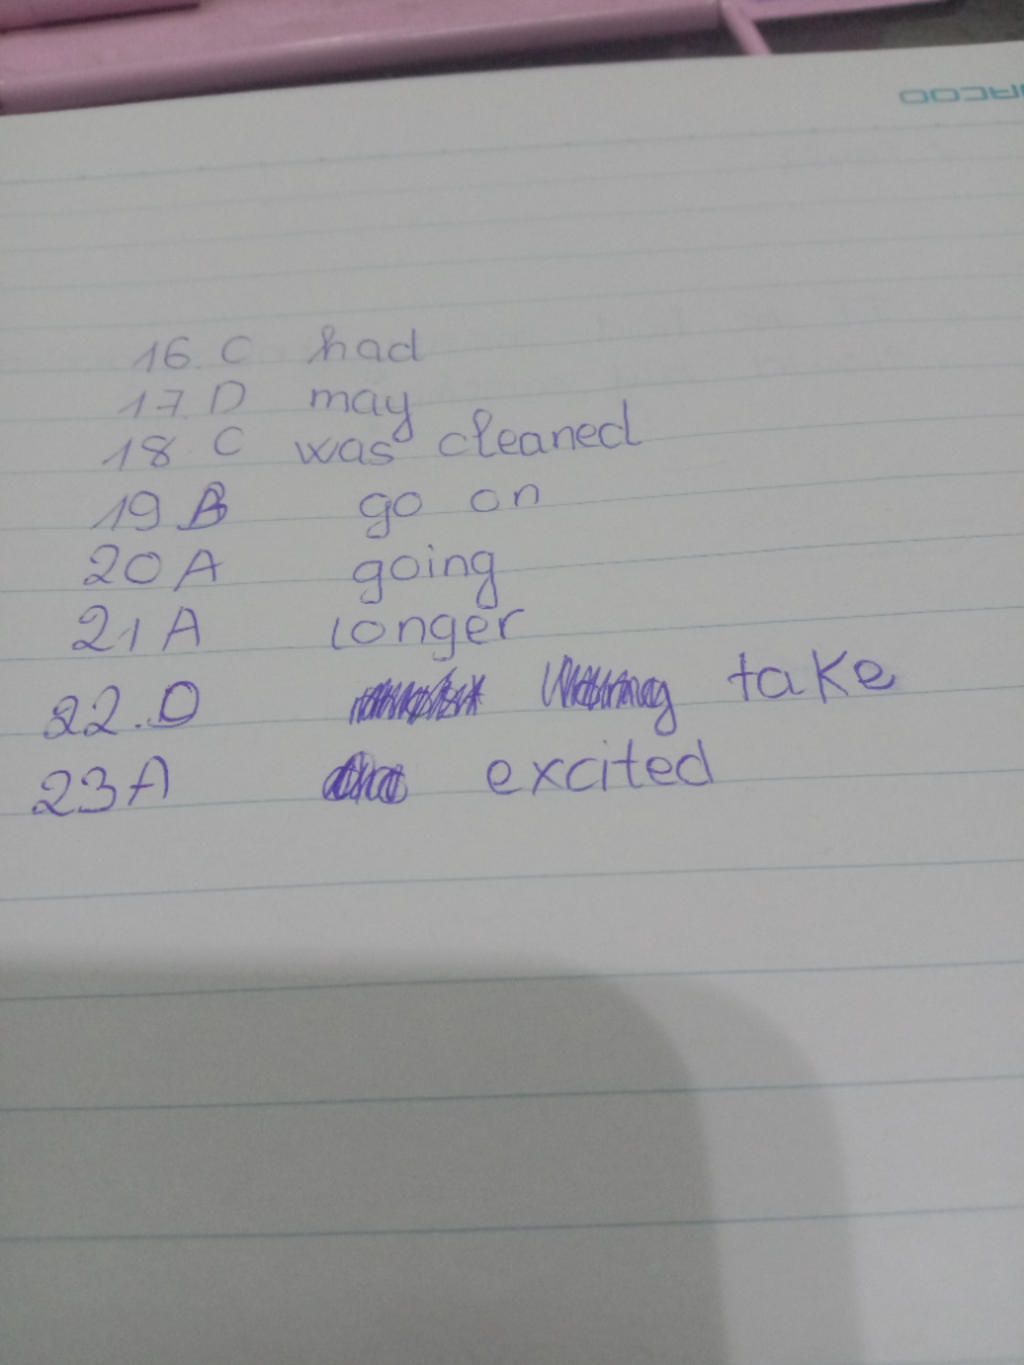 16. C had
17. D may
18 C was cleaned
19 B go on
20 A going
21 A longer
22. D take
23 A excited